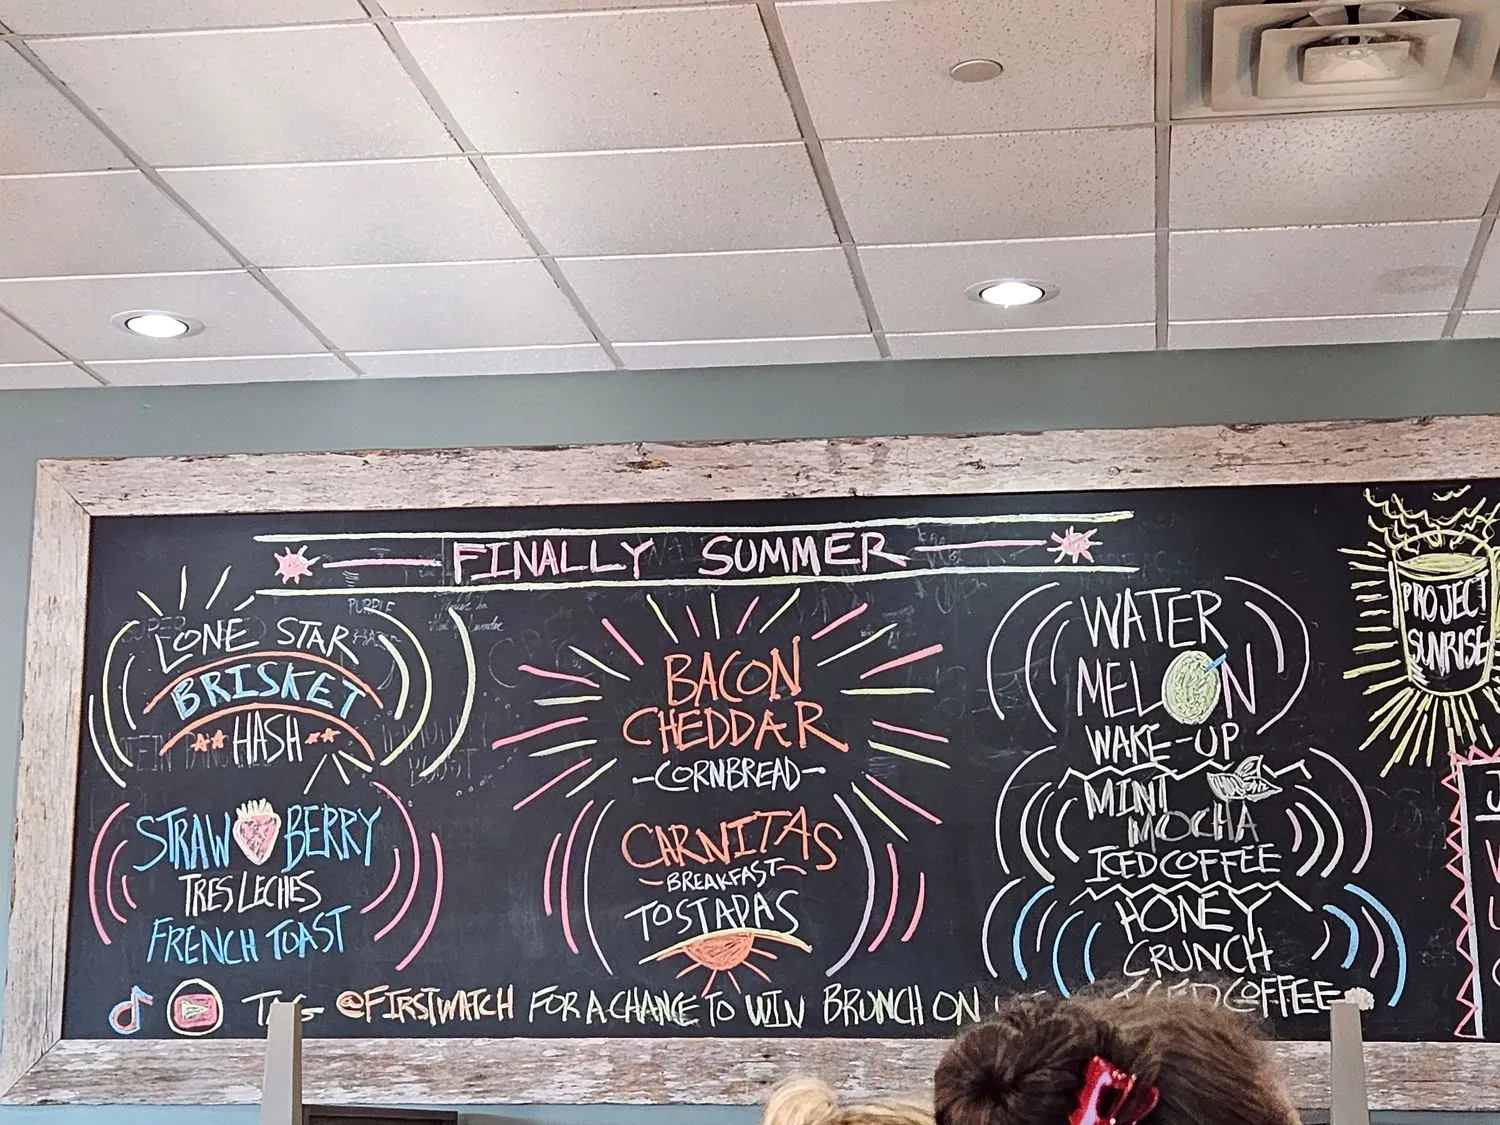 FINALLY SUMMER
LONE STAR
BRISKET
HASH
STRAWBERRY
TRES LECHES
FRENCH TOAST
BACON
CHEDDAR
-CORNBREAD-
CARNITAS
BREAKFAST
TOSTADAS
WATER
MELON
WAKE-UP
MINT
MOCHA
ICED COFFEE
HONEY
CRUNCH
ICED COFFEE
PROJECT
SUNRISE
TAG @FIRSTWATCH FOR A CHANCE TO WIN BRUNCH ON